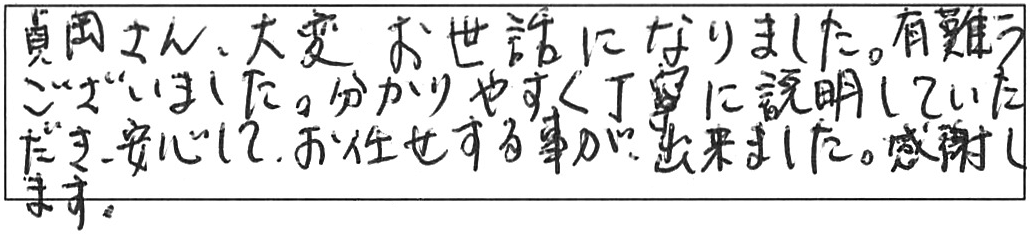 貞岡さん、大変 お世話になりました。有難う
ございました。分かりやすく丁寧に説明していた
だき、安心して、お任せする事が、出来ました。感謝し
ます。